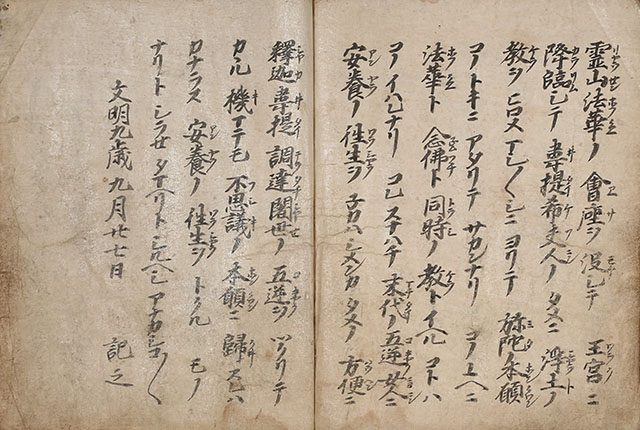 霊山法華ノ會座ヲ没シテ 王宮ニ
降臨シテ 韋提希夫人ノ タメニ 浄土ノ
教ヲ ヒロメマシ〳〵シニ ヨリテ 弥陀ノ本願
コノトキニ アタリテ サカンナリ コノユヘニ
法華ト 念佛ト 同時ノ 教ト イヘル コトハ
コノイハレナリ コレスナハチ 末代ノ五逆女人ニ
安養ノ 往生ヲ ネカハシメンカ タメノ 方便ニ
釋迦 韋提 調達 闍世ノ 五逆ヲ ツクリテ
カヽル 機ナレトモ 不思議ノ 本願ニ 歸スレハ
カナラス 安養ノ 往生ヲ トクル モノ
ナリト シラセ タマヘリト シルヘシ アナカシコ〳〵
文明九歳 九月廿七日 記之